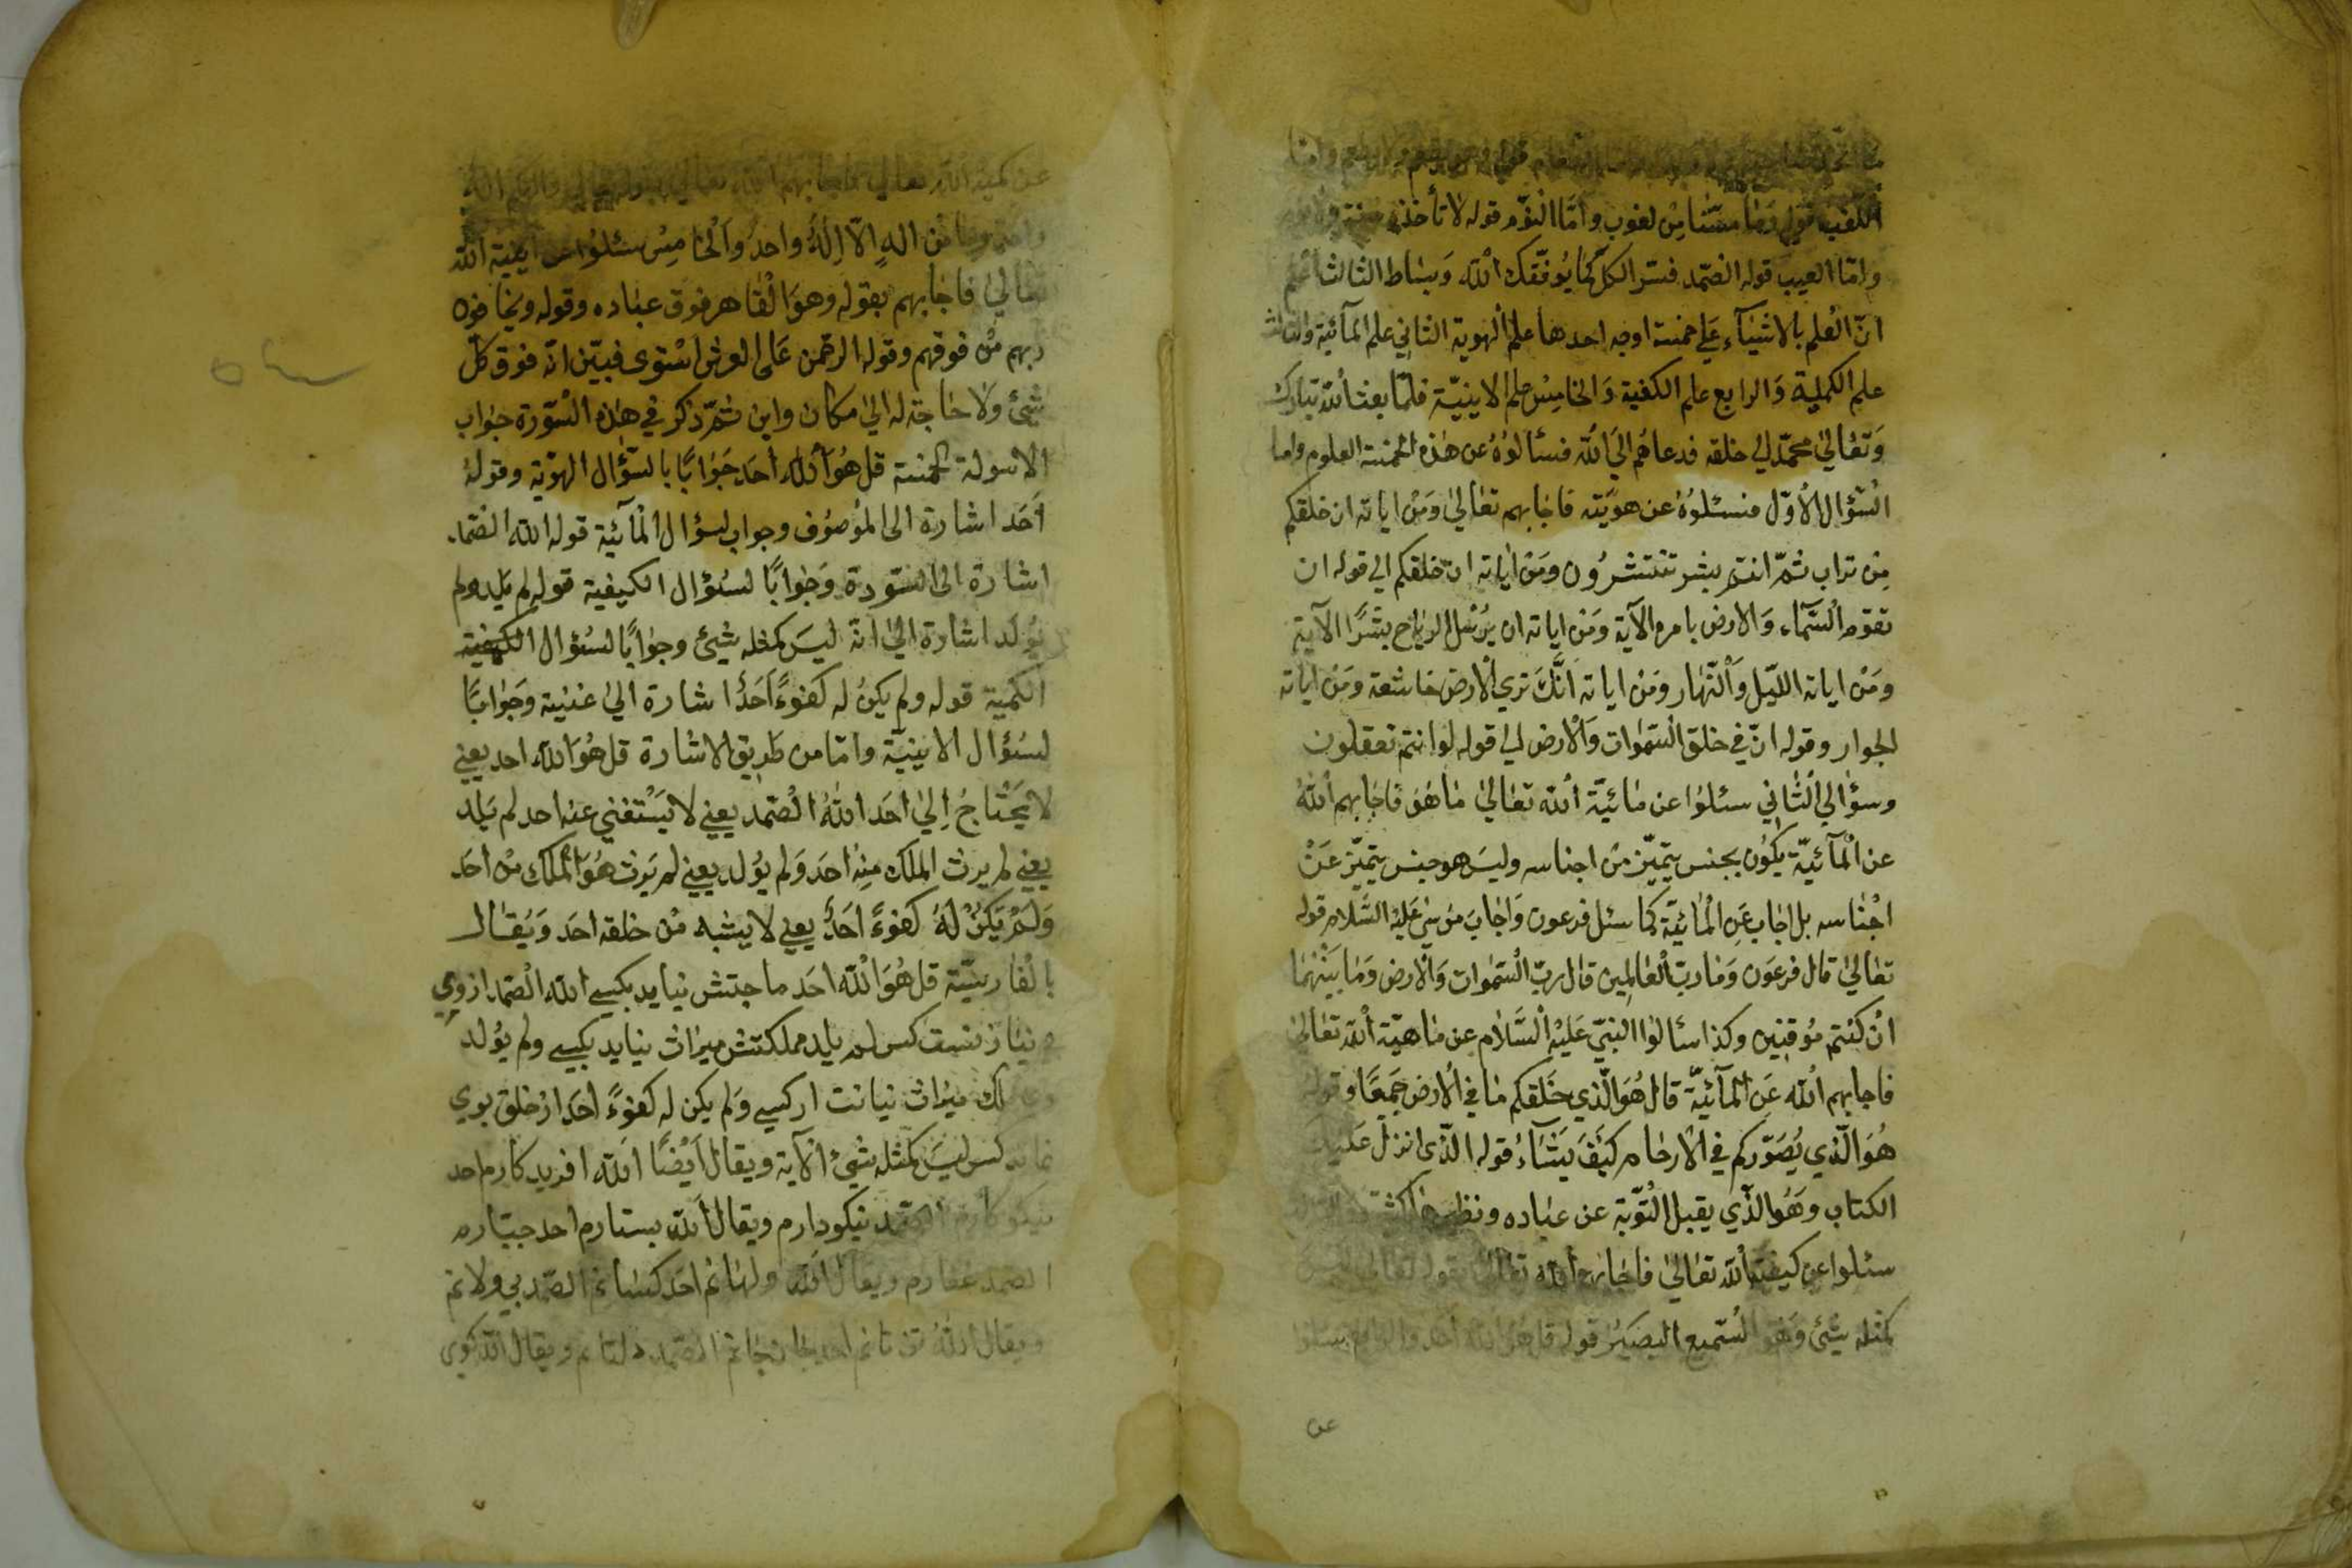 اللغب قوله وما مسّنا من لغوب وامّا النوّم قوله لا تأخذه سنة
وامّا العيب قوله الصّمد فسّر الكلّ كما يُوفّقك الله وبساط الثالث اعلم
انّ العلم بالاشيآء علي خمسة اوجه احدها علم الهوية الثاني علم المآئية والثالث
علم الكمية والرابع علم الكفية والخامس علم الاينيّة فلمّا بعث الله تبارك
وتعالي محمّد الي خلقه فدعاهم الي الله فسألوه عن هذه الخمسة العلوم واما
السّؤال الاوّل فسئلوه عن هويّته فاجابهم تعالي ومن اياته ان خلقكم
من تراب ثمّ انتم بشر تنتشرون ومن اياته ان خلقكم الي قوله ان
تقوم السّمآء والارض بامره الآية ومن اياته ان يرسل الرياح بشرًا الآية
ومن اياته اللّيل والنّهار ومن اياته انّك تري الارض خاشعة ومن اياته
الجوار وقوله انّ في خلق السّموات والارض الي قوله لو انتم تعقلون
وسؤالي الثّاني سئلوا عن مائيّة الله تعالي ما هو فاجابهم الله
عن المآئيّة يكون بجنس يتميّز من اجناسه وليس هو جنس يتميّز عن
اجناسه بل اجاب عن المائيّة كما سئل فرعون واجاب موسي عليه السّلام قوله
تعالي قال فرعون وما ربّ العالمين قال ربّ السّموات والارض وما بينهما
ان كنتم موقنين وكذا سألوا النبيّ عليه السّلام عن ماهيّة الله تعالي
فاجابهم الله عن المآئيّة قال هو الّذي خلقكم ما في الارض جميعًا وقوله
هو الّذي يصوّركم في الارحام كيف يشآء قوله الّذي انزل عليك
الكتاب وهو الّذي يقبل التّوبة عن عباده ونظيرها كثيرة
سئلوا عن كيفية الله تعالي فاجابهم الله تعالي بقوله تعالي ليس
كمثله شيئ وهو السّميع البصير قوله قل هو الله احد والرابع سئلوا
عن
عن كمية الله تعالي فاجابهم الله تعالي بقوله تعالي والهكم اله
واحد وما من اله الّا اله واحد والخامس سئلوا عن اينية الله
تعالي فاجابهم بقوله وهو القاهر فوق عباده وقوله ويخافون
ربهم من فوقهم وقوله الرحمن على العرش استوى فبيّن انّه فوق كلّ
شئ ولا حاجة له الي مكان واين ثمّ ذكر في هذه السّورة جواب
الاسولة الخمسة قل هو الله احد جوابًا بالسّؤال الهوّية وقوله
احد اشارة الى الموصوف وجواب لسؤال المآئية قوله الله الصّمد
اشارة الى السّورة وجوابًا لسؤال الكيفية قوله لم يلد ولم
يولد اشارة الي انّه ليس كمثله شيئ وجوابًا لسؤال الكيفية
الكمّية قوله ولم يكن له كفوءً احد اشارة الي عنيّة وجوابًا
لسؤال الاينيّة وامّا من طريق الاشارة قل هو الله احد يعني
لا يحتاج الي احد الله الصّمد يعني لا يستغني عنه احد لم يلد
يعني لم يرث الملك منه احد ولم يولد يعني لم يرث هو الملك من احد
ولم يكن له كفوءً احد يعني لا يشبه من خلقه احد ويقال
بالفارسيّة قل هو الله احد ماجتش نيايد بكسي الله الصّمد ازوي
نياز نيست كس لم يلد مملكتش ميراث نيايد بكسي ولم يولد
ميراث نيافت از كسي ولم يكن له كفوءً احد از خلق بوي
نماند كس ليس كمثله شئ الآية ويقال ايضًا الله افريد كارم احد
نيكو كارم الصّمد نيكودارم ويقال الله بستارم احد جبّارم
الصمد غفارم ويقال الله احد الصّمد
ويقال الله احد الصّمد ويقال الله